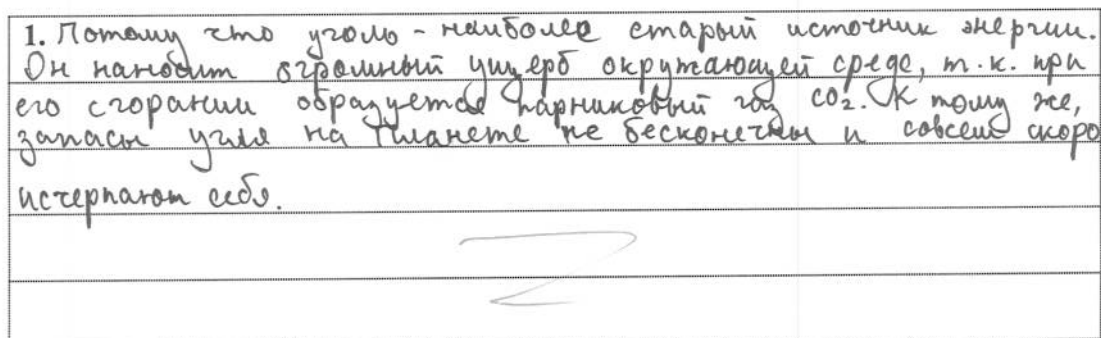 1. Потому что уголь - наиболее старый источник энергии.
Он наносит огромный ущерб окружающей среде, т.к. при
его сгорании образуется парниковый газ CO₂. К тому же,
запасы угля на планете не бесконечны и совсем скоро
исчерпают себя.